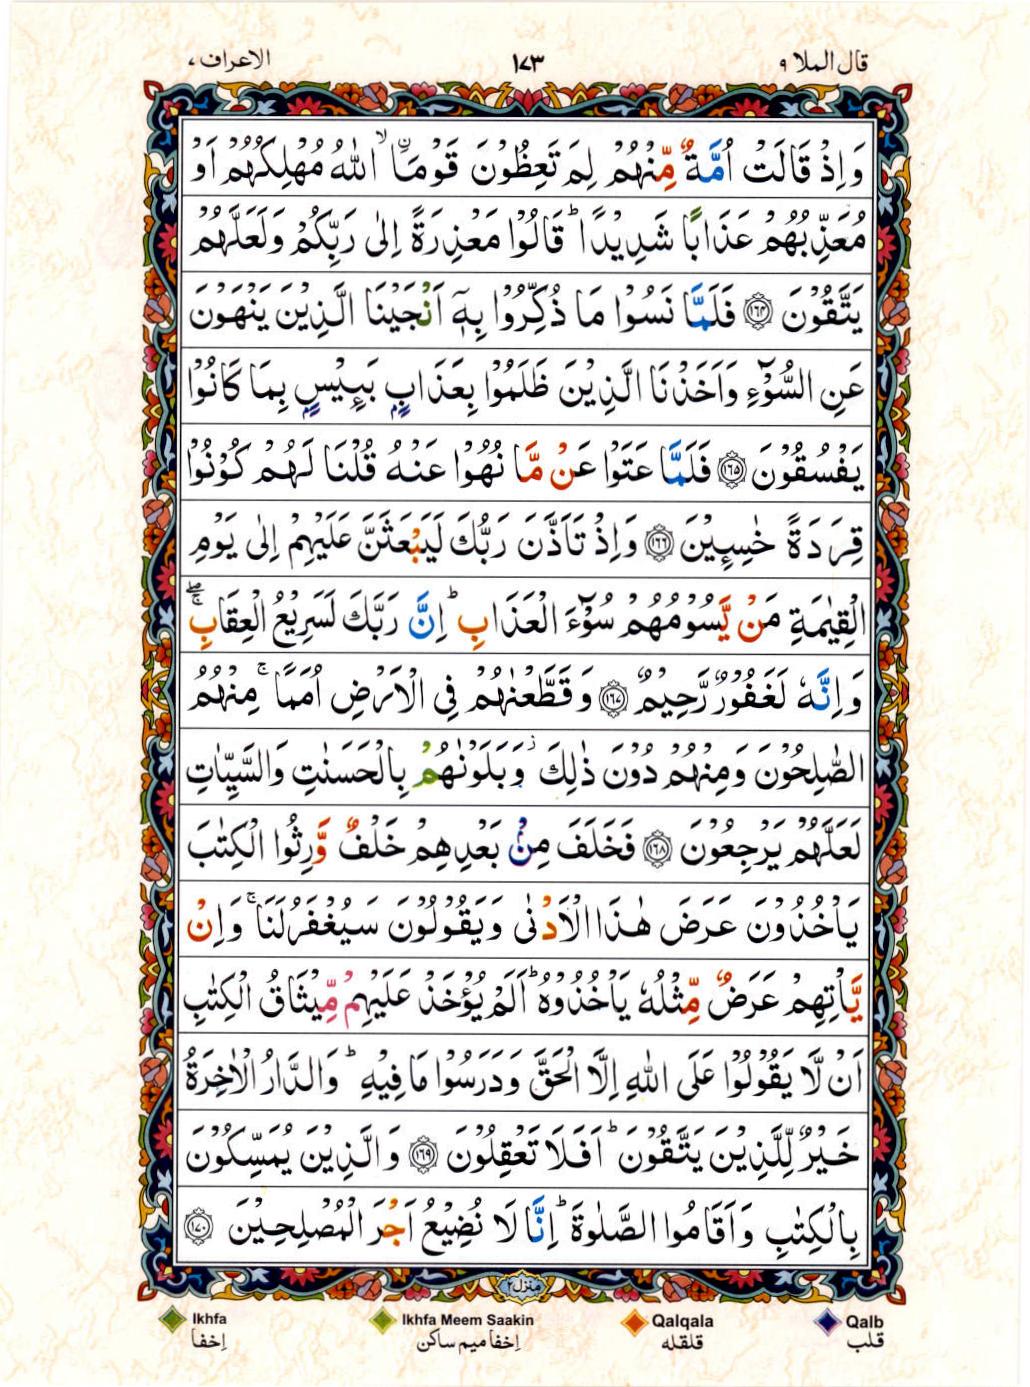 قال الملا ٩
١٧٣
الاعراف ٧
وَاِذْ قَالَتْ اُمَّةٌ مِّنْهُمْ لِمَ تَعِظُوْنَ قَوْمَاۨ ۙ اللّٰهُ مُهْلِكُهُمْ اَوْ
مُعَذِّبُهُمْ عَذَابًا شَدِيْدًا ؕ قَالُوْا مَعْذِرَةً اِلٰى رَبِّكُمْ وَلَعَلَّهُمْ
يَتَّقُوْنَ ﴿١٦٤﴾ فَلَمَّا نَسُوْا مَا ذُكِّرُوْا بِهٖۤ اَنْجَيْنَا الَّذِيْنَ يَنْهَوْنَ
عَنِ السُّوْٓءِ وَاَخَذْنَا الَّذِيْنَ ظَلَمُوْا بِعَذَابٍۭ بَـِٕيْسٍۭ بِمَا كَانُوْا
يَفْسُقُوْنَ ﴿١٦٥﴾ فَلَمَّا عَتَوْا عَنْ مَّا نُهُوْا عَنْهُ قُلْنَا لَهُمْ كُوْنُوْا
قِرَدَةً خٰسِـِٕيْنَ ﴿١٦٦﴾ وَاِذْ تَاَذَّنَ رَبُّكَ لَيَبْعَثَنَّ عَلَيْهِمْ اِلٰى يَوْمِ
الْقِيٰمَةِ مَنْ يَّسُوْمُهُمْ سُوْٓءَ الْعَذَابِ ؕ اِنَّ رَبَّكَ لَسَرِيْعُ الْعِقَابِ ۖۚ
وَاِنَّهٗ لَغَفُوْرٌ رَّحِيْمٌ ﴿١٦٧﴾ وَقَطَّعْنٰهُمْ فِى الْاَرْضِ اُمَمًا ۚ مِنْهُمُ
الصّٰلِحُوْنَ وَمِنْهُمْ دُوْنَ ذٰلِكَ ؗ وَبَلَوْنٰهُمْ بِالْحَسَنٰتِ وَالسَّيِّاٰتِ
لَعَلَّهُمْ يَرْجِعُوْنَ ﴿١٦٨﴾ فَخَلَفَ مِنْۢ بَعْدِهِمْ خَلْفٌ وَّرِثُوا الْكِتٰبَ
يَاْخُذُوْنَ عَرَضَ هٰذَا الْاَدْنٰى وَيَقُوْلُوْنَ سَيُغْفَرُ لَنَا ۚ وَاِنْ
يَّاْتِهِمْ عَرَضٌ مِّثْلُهٗ يَاْخُذُوْهُ ؕ اَلَمْ يُؤْخَذْ عَلَيْهِمْ مِّيْثَاقُ الْكِتٰبِ
اَنْ لَّا يَقُوْلُوْا عَلَى اللّٰهِ اِلَّا الْحَقَّ وَدَرَسُوْا مَا فِيْهِ ؕ وَالدَّارُ الْاٰخِرَةُ
خَيْرٌ لِّلَّذِيْنَ يَتَّقُوْنَ ؕ اَفَلَا تَعْقِلُوْنَ ﴿١٦٩﴾ وَالَّذِيْنَ يُمَسِّكُوْنَ
بِالْكِتٰبِ وَاَقَامُوا الصَّلٰوةَ ؕ اِنَّا لَا نُضِيْعُ اَجْرَ الْمُصْلِحِيْنَ ﴿١٧٠﴾
منزل ٢
Ikhfa
إخفا
Ikhfa Meem Saakin
إخفا ميم ساكن
Qalqala
قلقله
Qalb
قلب